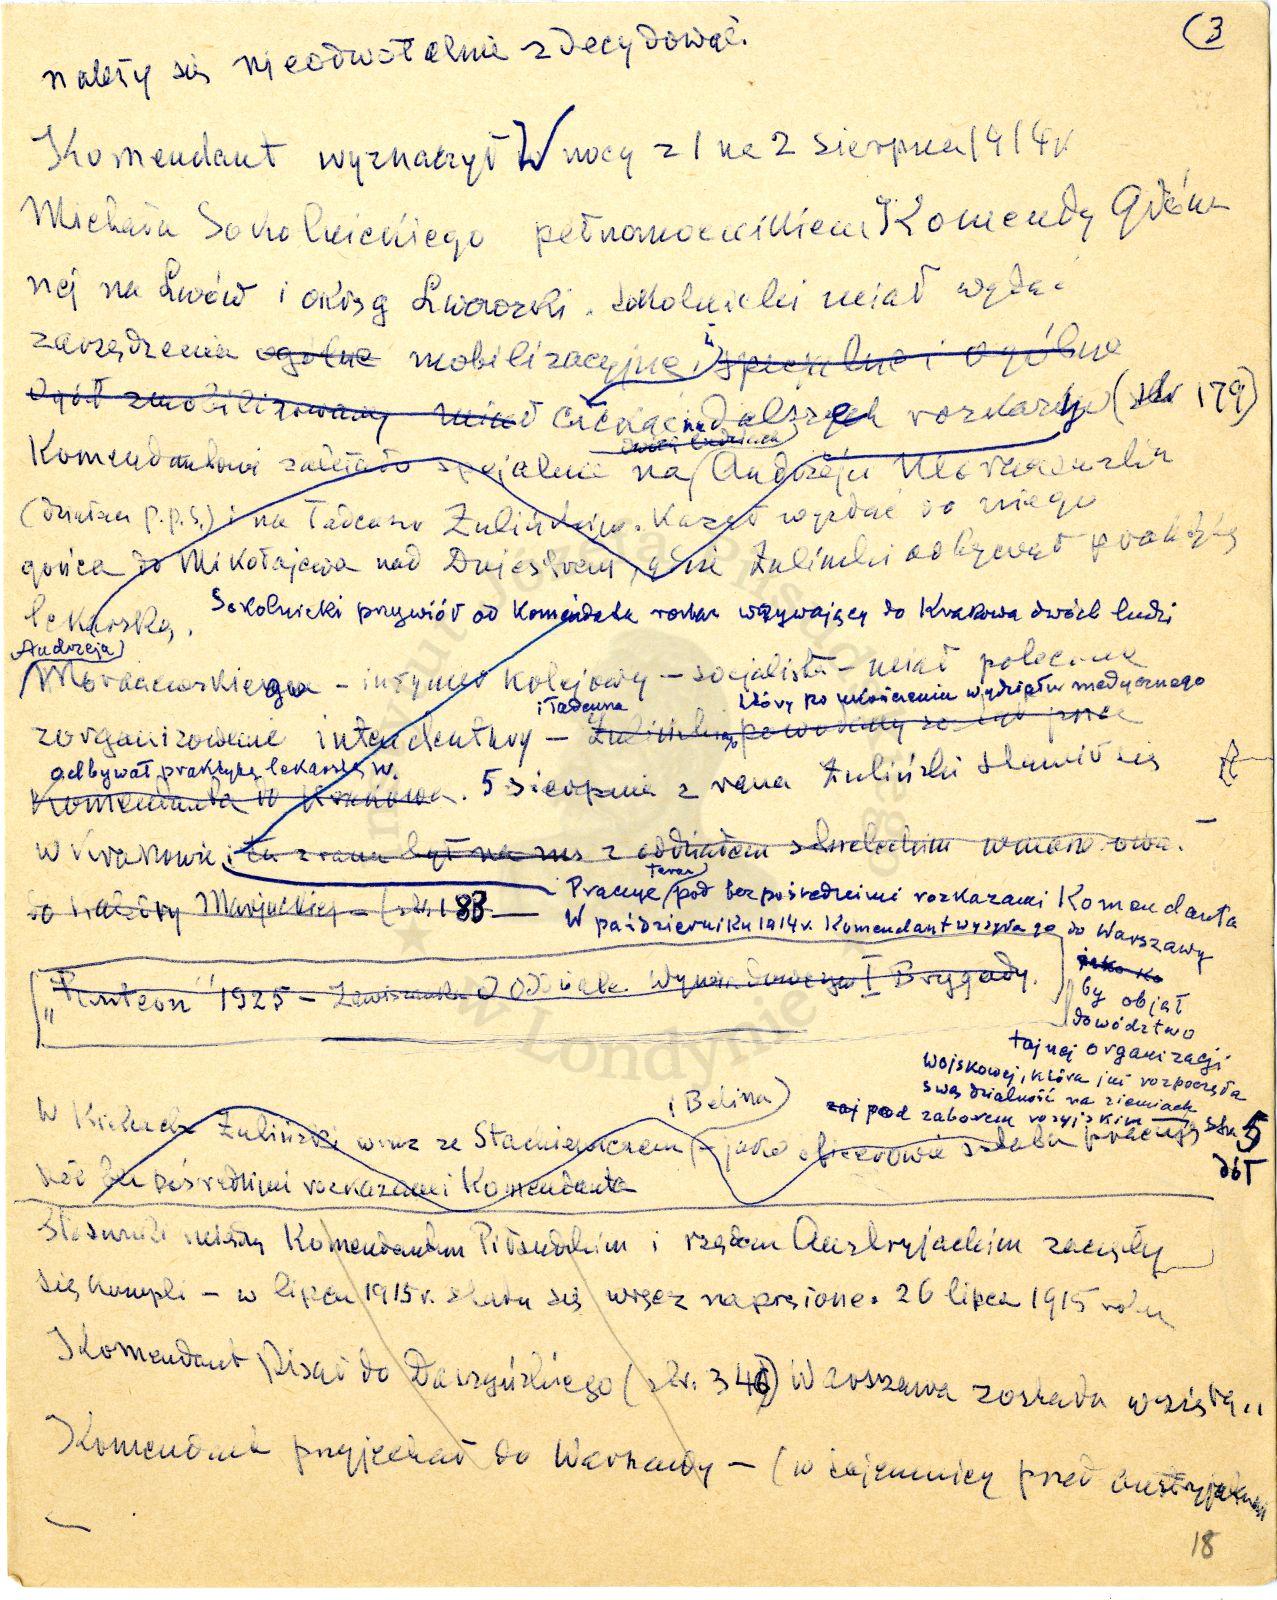 (3
należy się nieodwołalnie zdecydować.
Komendant wyznaczył W nocy z 1 na 2 sierpnia 1914 r
Michała Sokolnickiego pełnomocnikiem Komendy Głów
nej na Lwów i okręg Lwowski. Sokolnicki miał wydać
zarządzenia ogólne mobilizacyjne i specjalne i ogólne
Ogół zmobilizowany miał czekać na dalszych rozkazy (str 179)
dwóch ludziach
Komendantowi zależało specjalnie na Andrzeju Moraczewskim
(działacz p.p.s.) i na Tadeuszu Żulińskim. Kazał wysłać do niego
gońca do Mikołajewa nad Dniestrem, gdzie Żuliński odbywał praktykę
lekarską. Sokolnicki przywiózł od Komendanta rozkaz wzywający do Krakowa dwóch ludzi
Andrzeja
Moraczewskiego – inżynier kolejowy – socjalista – miał polecenie
i Tadeusza który po ukończeniu wydziału medycznego
zorganizowanie intendentury – Żuliński powołany
odbywał praktykę lekarską w.
Komendanta do Krakowa. 5 sierpnia z rana Żuliński stawił się
w Krakowie i tu zrana był na mszy z oddziałem strzeleckim
do Marjackiej – (str. 183 – Pracuje teraz pod bezpośrednimi rozkazami Komendanta
W październiku 1914 r. Komendant wysyła go do Warszawy
jako ko
by objął
dowództwo
tajnej organizacji
wojskowej, która już rozpoczęła
swą działalność na ziemiach
pod zaborem rosyjskim
„Panteon" 1925 – Zawiszanka O Oddziale Wywiadowczym I Brygady.
(Belina)
W Kielcach Żuliński wraz ze Stachiewiczem – jako oficerowie sztabu pracują str 5
dół
pod bezpośrednimi rozkazami Komendanta
Stosunki między Komendantem Piłsudskim i rządem Austryjackim zaczęły
się kompli – w lipcu 1915 r. stały się wręcz napięcione. 26 lipca 1915 roku
Komendant pisał do Daszyńskiego (str. 346) Warszawa została wzięta..
Komendant przyjechał do Warszawy – (w tajemnicy przed Austryjakami
18